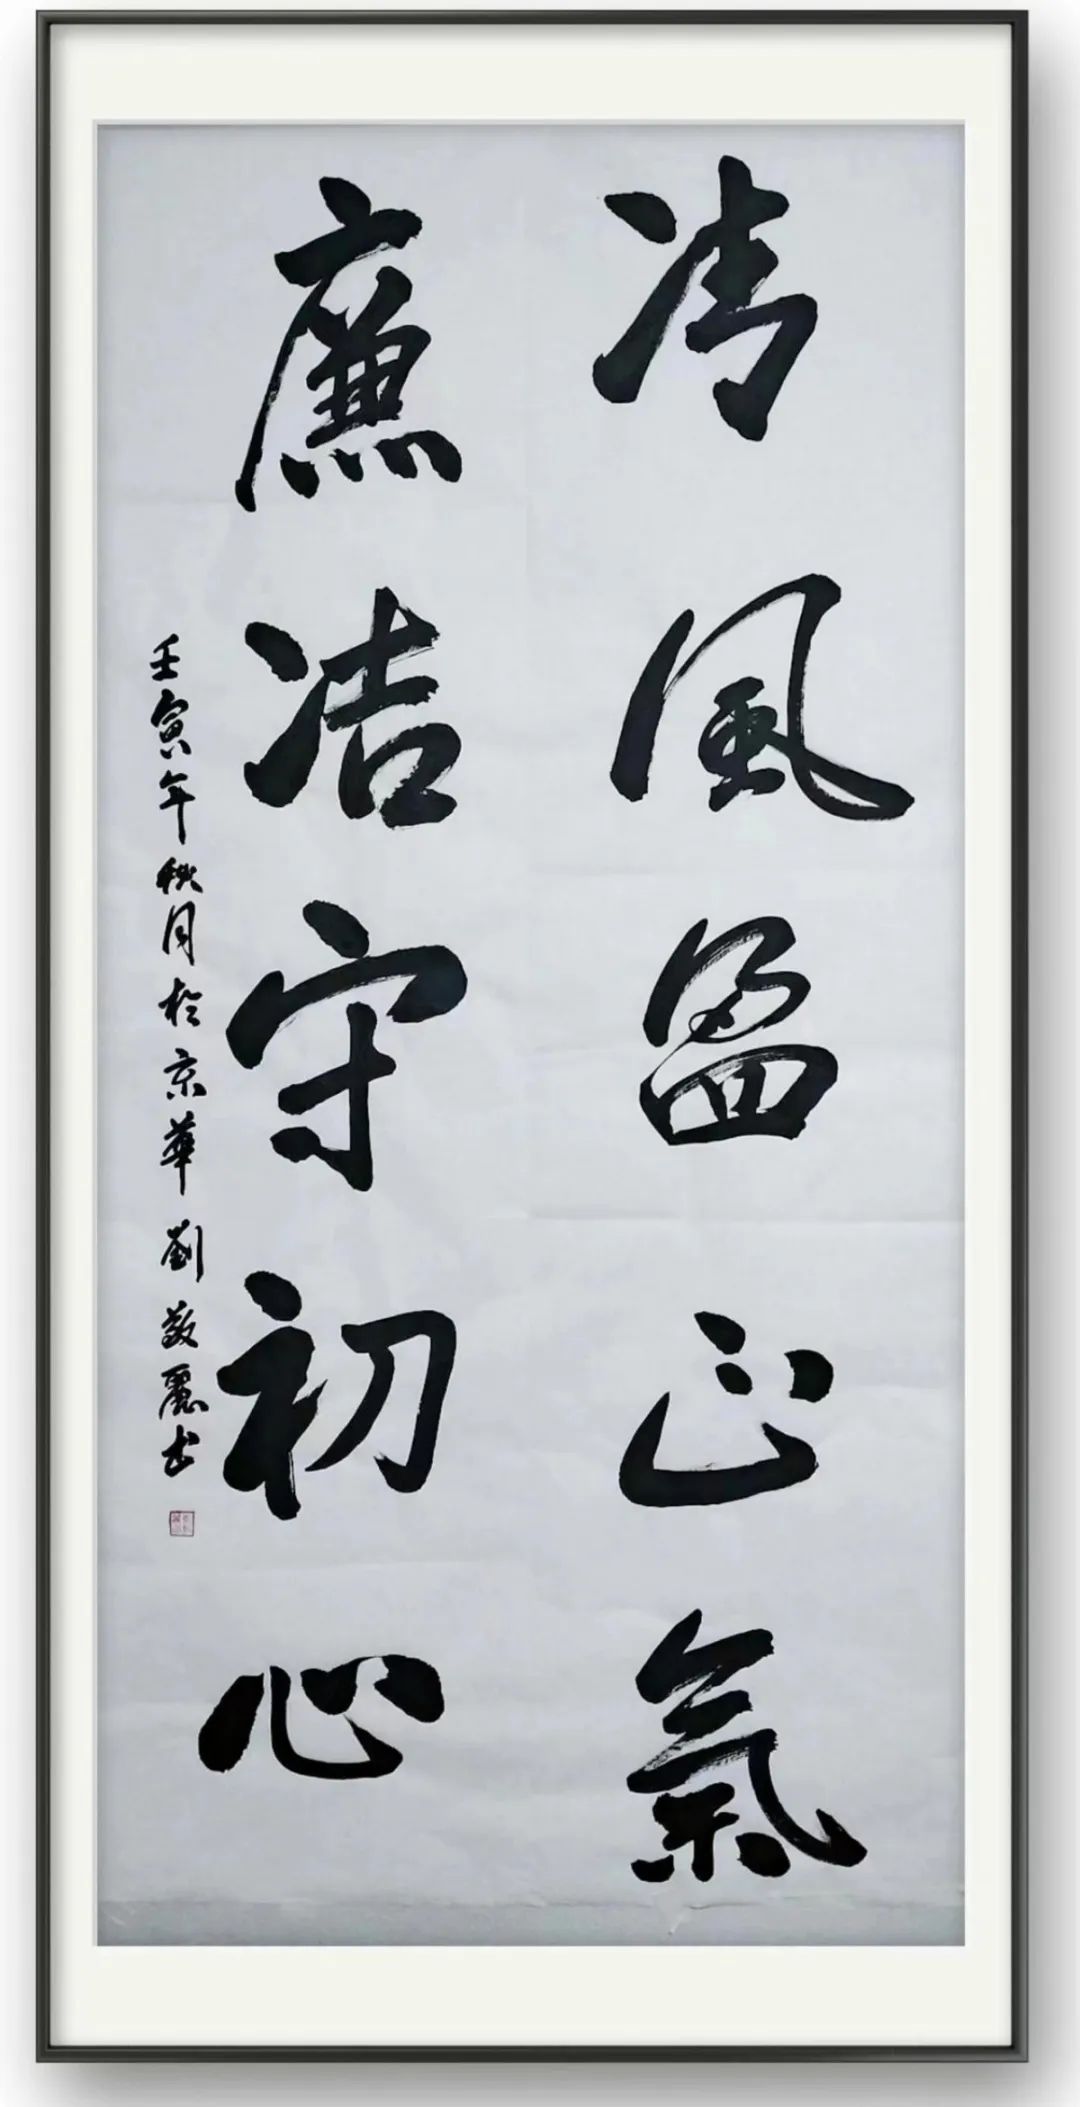 清風盈正氣
廉洁守初心
壬寅年秋月於京華劉敬麗书